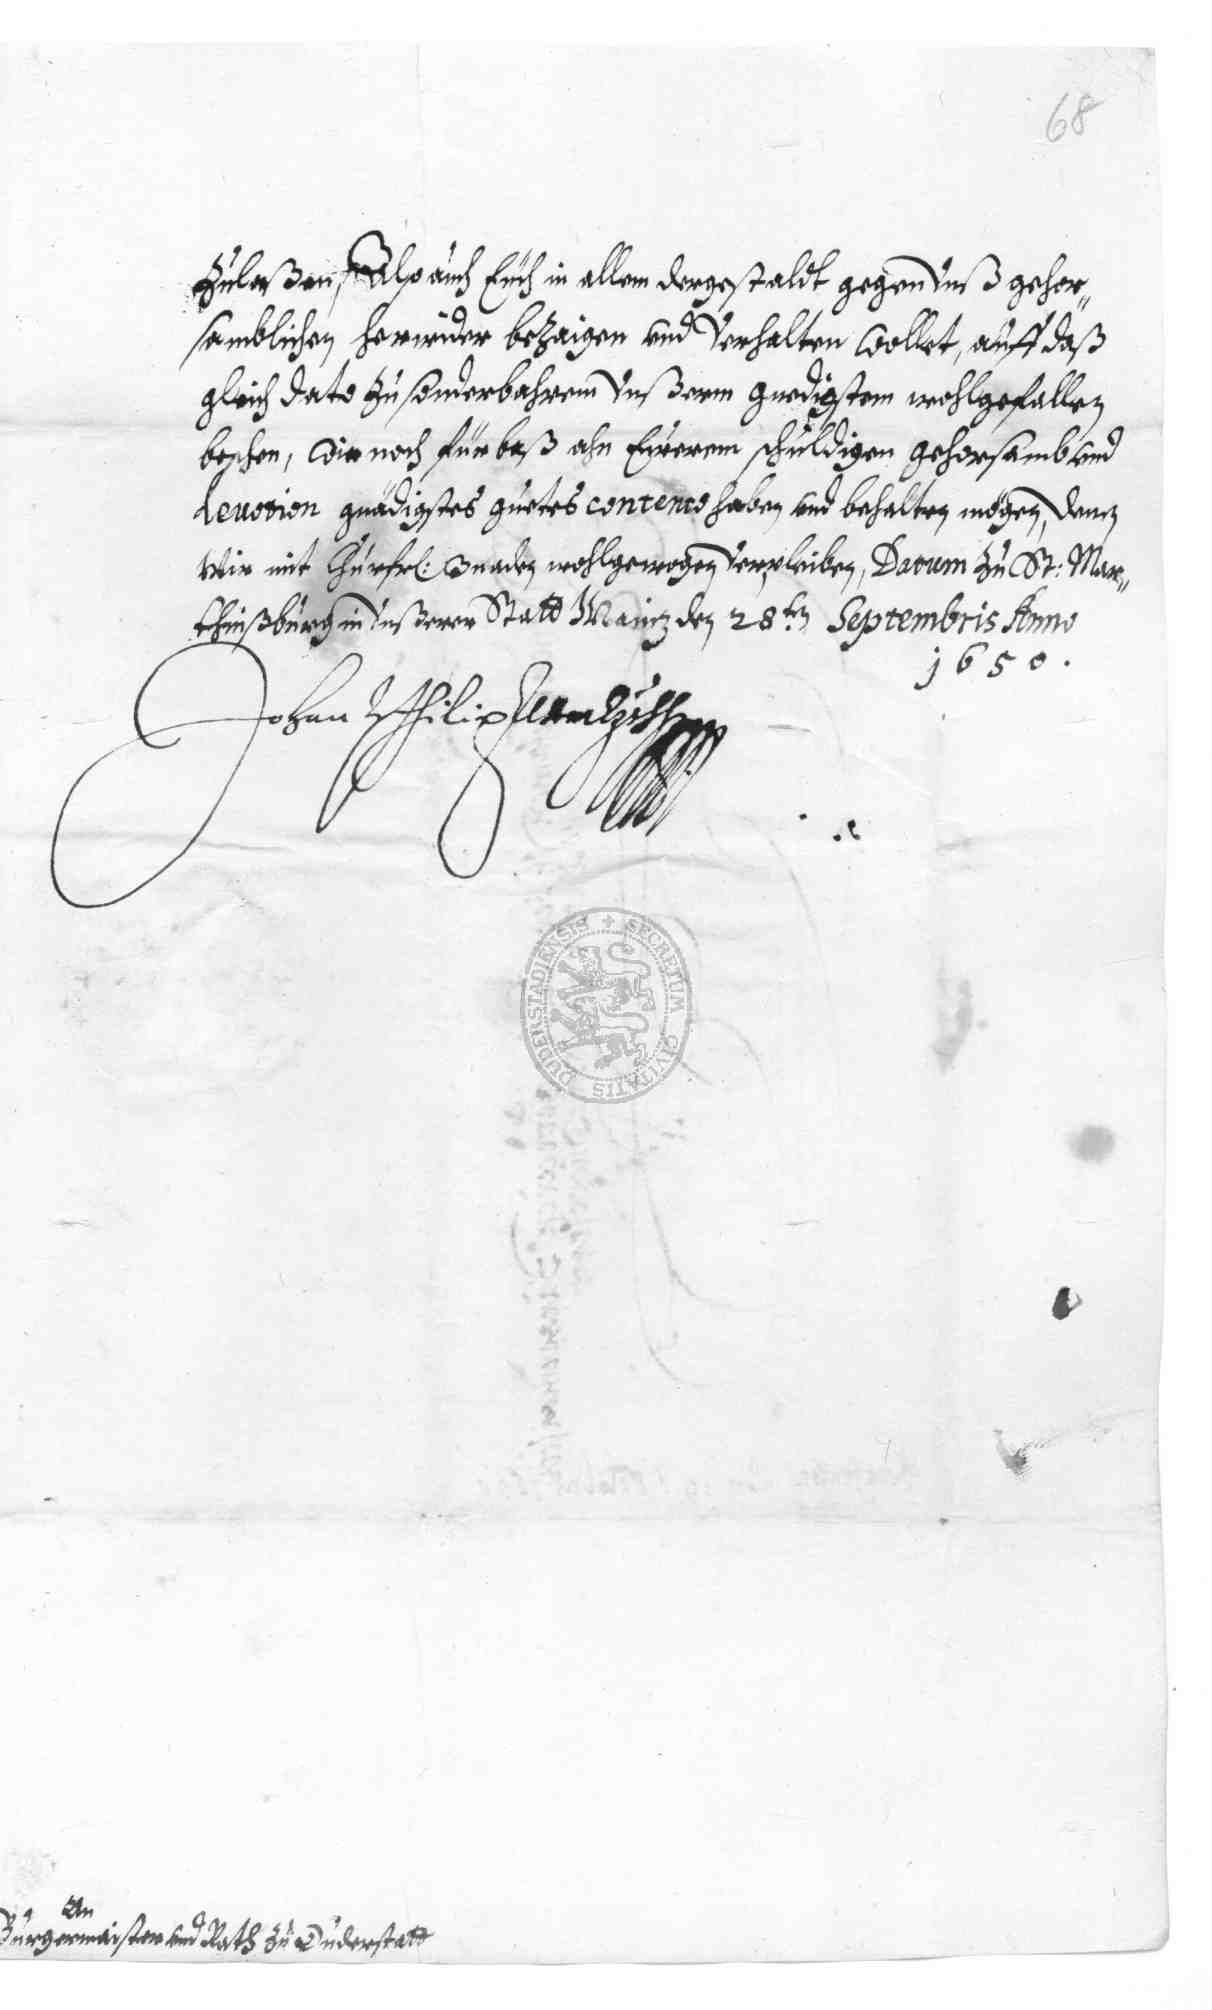 68
zulaßen, Also auch Euch in allem dergestaldt gegen Unß gehor-
samblichen herwider bezaigen und Verhalten wollet, auff daß
gleich dato zu sonderbahrem Unßerm gnedigstem wohlgefallen
beschen, wir noch fürbaß ahn Ewerem schuldigen gehorsamb und
devotion gnädigstes guetes contento haben und behalten mögen, denen
Wir mit Churfrl: Gnaden wohlgewogen Verpleiben, Datum zu St: Mar-
thinßburg in Unßerer Statt Maintz den 28ten Septembris Anno
1650.
Johan Philip
SECRETUM CIVITATIS DUDERSTADIENSIS
An
Bürgermaister und Rath zu Duderstatt